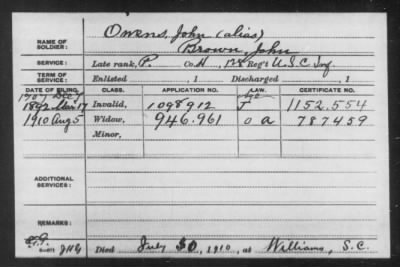 NAME OF SOLDIER: Owens, John (alias)
Brown, John
SERVICE: Late rank, P. Co. H, 128 Reg't U.S.C. Inf.
TERM OF SERVICE: Enlisted , 1 Discharged , 1
DATE OF FILING. CLASS. APPLICATION NO. LAW. CERTIFICATE NO.
1892 Mar 17 Invalid, 1098912 J 1152.554
1910 Aug 5 Widow, 946.961 O a 787459
Minor,
ADDITIONAL SERVICES:
REMARKS:
Died July 30, 1910, at Williams, S.C.